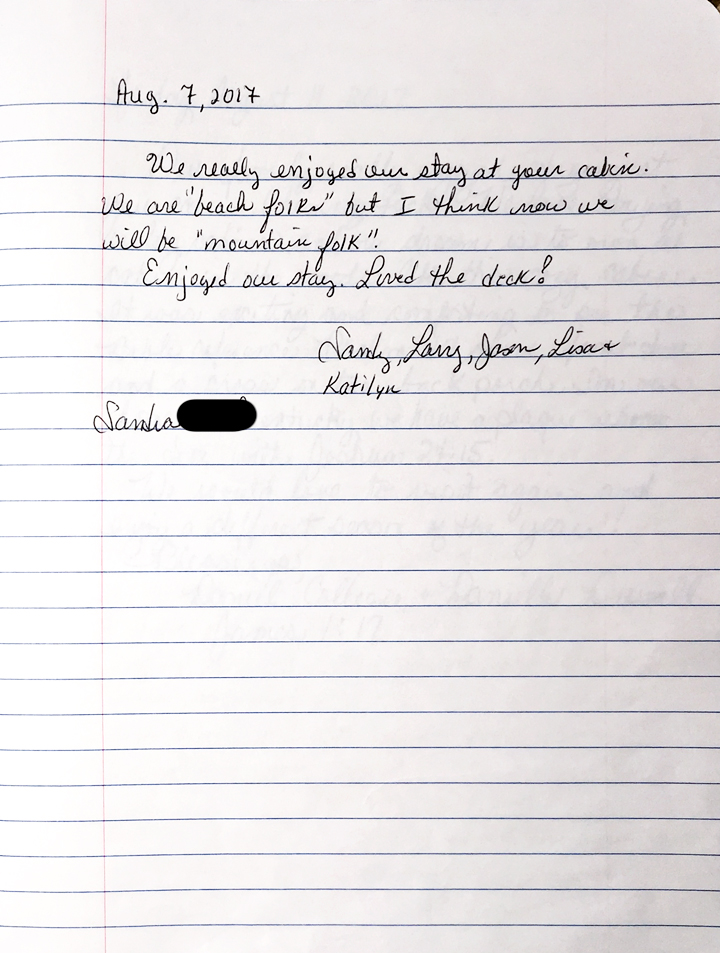 Aug. 7, 2017
We really enjoyed our stay at your cabin.
We are "beach folks" but I think now we
will be "mountain folk"!
Enjoyed our stay. Loved the deck!
Sandy, Larry, Jason, Lisa &
Katilyn
Sandra